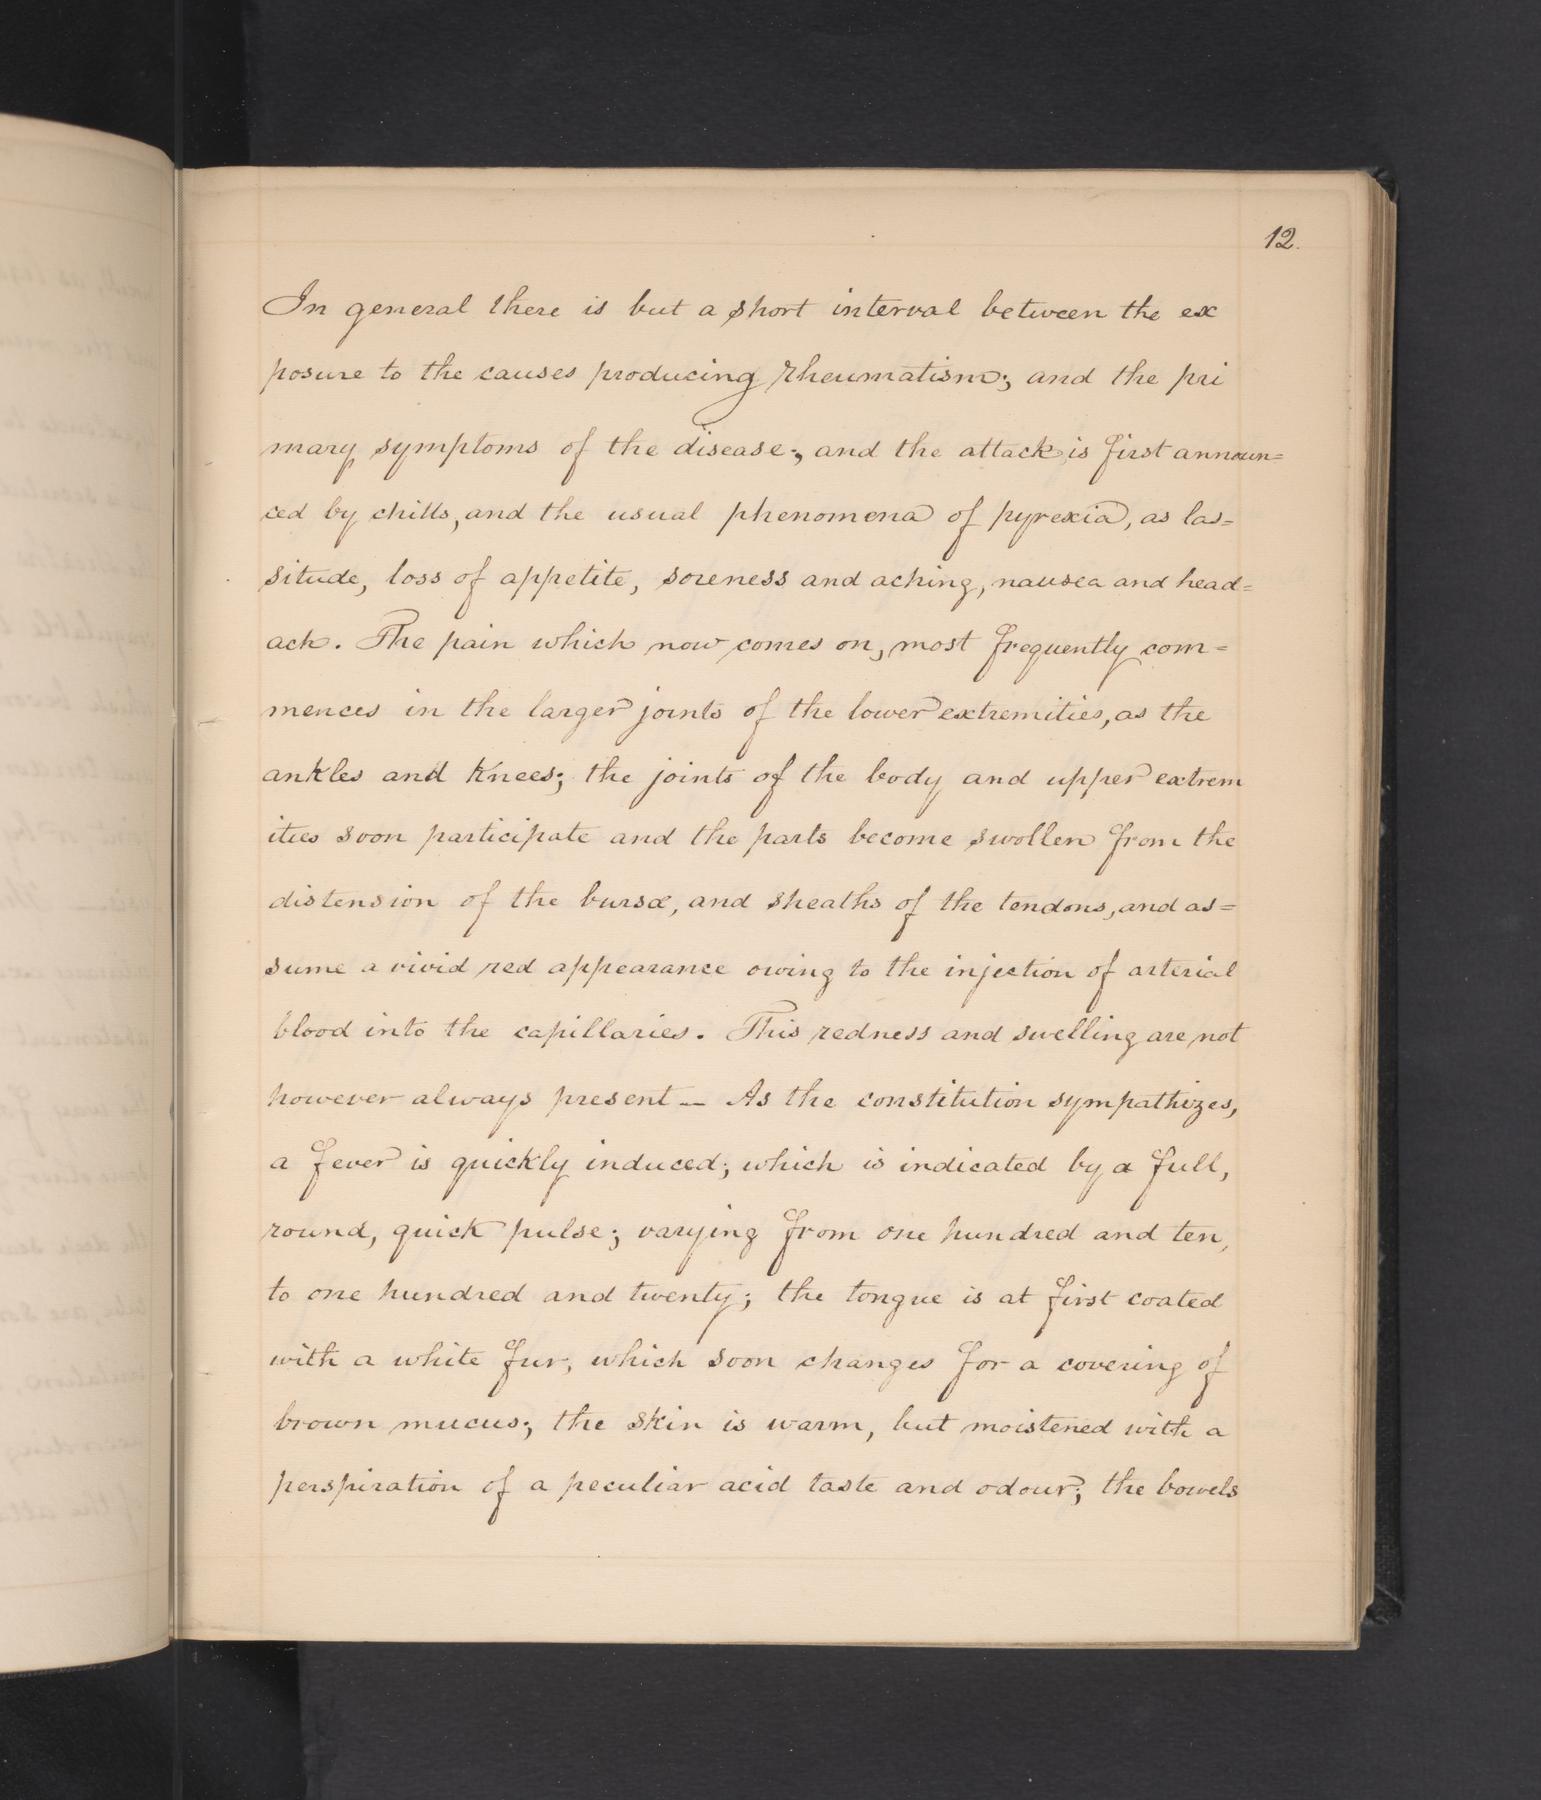 12.
In general there is but a short interval between the ex
posure to the causes producing rheumatism; and the pri
mary symptoms of the disease; and the attack is first announ=
ced by chills, and the usual phenomena of pyrexia, as las=
situde, loss of appetite, soreness and aching, nausea and head=
ach. The pain which now comes on, most frequently com=
mences in the larger joints of the lower extremities, as the
ankles and knees; the joints of the body and upper extrem
ities soon participate and the parts become swollen from the
distension of the bursæ, and sheaths of the tendons, and as=
sume a vivid red appearance owing to the injection of arterial
blood into the capillaries. This redness and swelling are not
however always present — As the constitution sympathizes,
a fever is quickly induced; which is indicated by a full,
round, quick pulse; varying from one hundred and ten,
to one hundred and twenty; the tongue is at first coated
with a white fur, which soon changes for a covering of
brown mucus; the skin is warm, but moistened with a
perspiration of a peculiar acid taste and odour; the bowels